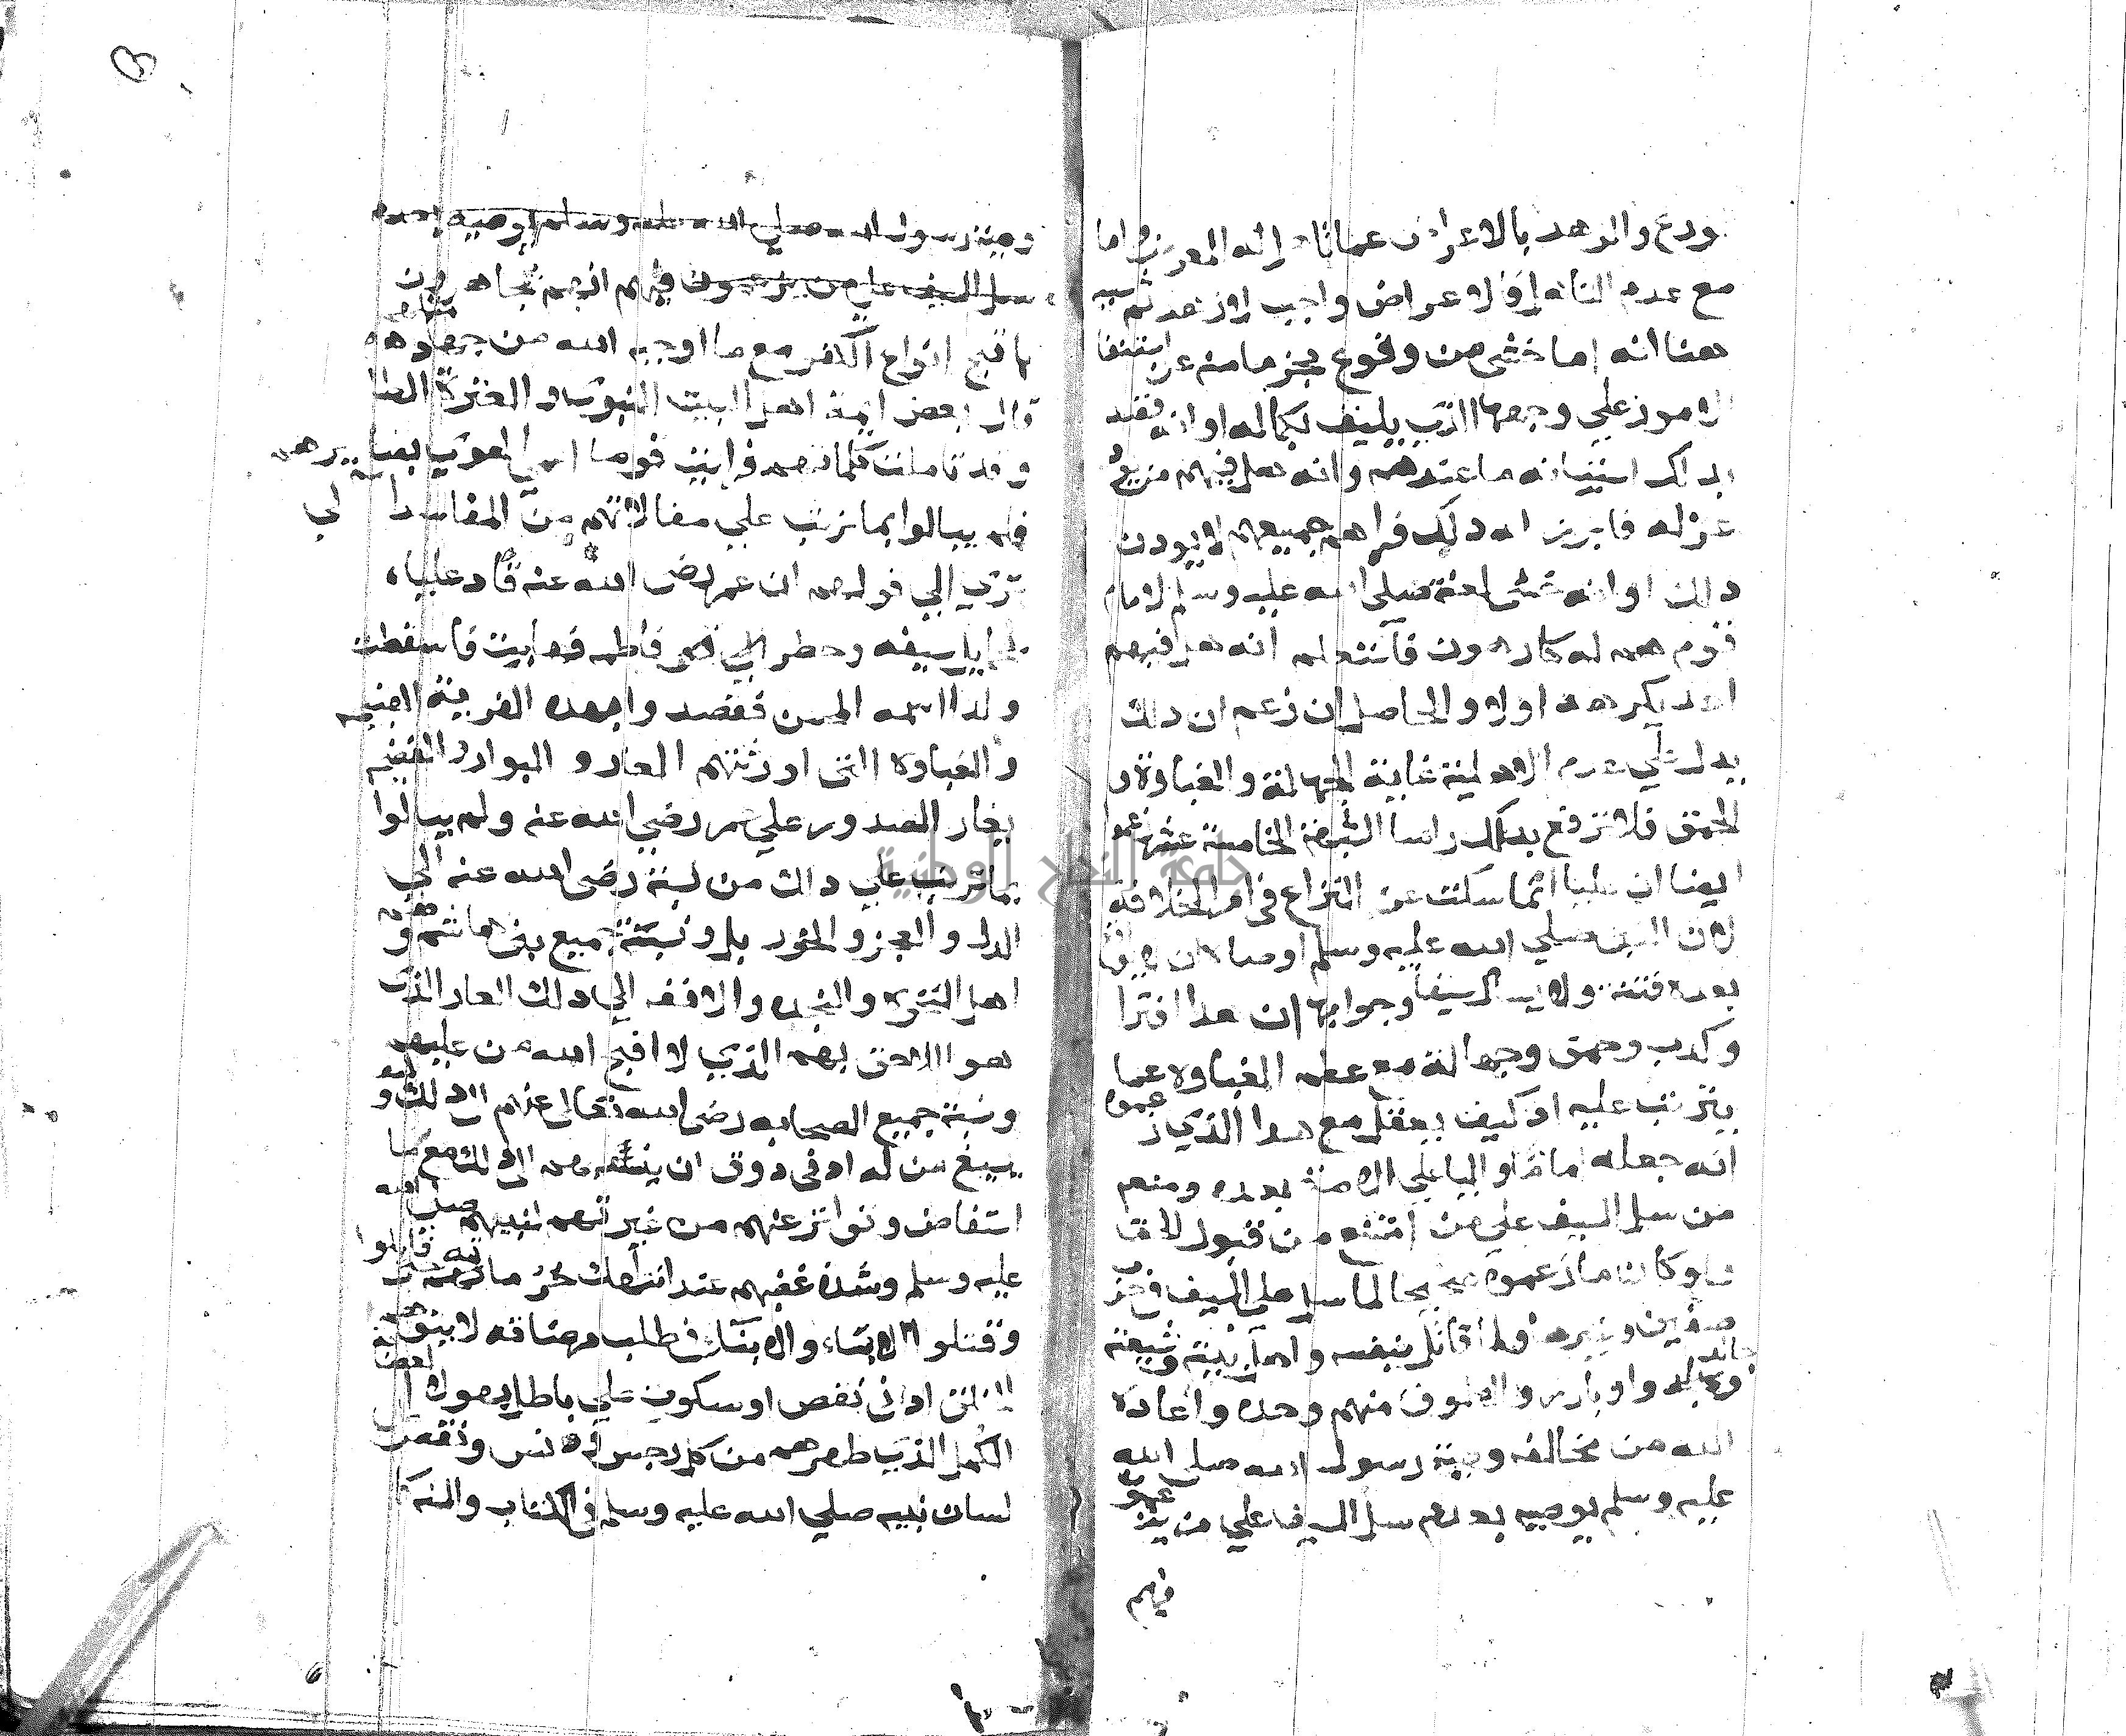 تورع والزهد بالاعراض عما تاهل له المعرض واما
مع عدم التاهل فالاعراض واجب لا زهد ثم سببه
هنا انه اما خشي من وقوع عجز ما منه عن استيفا
الامور علي وجهها الذي يليق بكماله او انه قصد
بذلك استبانه ما عندهم وانه هل فيهم من يود
عزله فابرز له ذلك فراهم جميعهم لا يودون
ذلك او انه خشي لعنته صلي الله عليه وسلم لامام
قوم هم له كارهون فاستعلم انه هل فيهم
احد يكرهه اولا والحاصل ان زعم ان ذلك
يدل علي عدم الاهلية غاية الجهالة والغباوة و
الحمق فلا ترفع بذلك راسا الشبهة الخامسة عشر زعموا
ايضا ان عليا انما سكت عن النزاع في امر الخلافة
لان النبي صلي الله عليه وسلم اوصاه ان لا يوقع
بعده فتنة ولا يسل سيفا وجوابها ان هذا افترا
وكذب وحمق وجهالة مع عظم الغباوه عما
يترتب عليه اذ كيف يعقل مع هذا الذي زعموه
انه جعله اماما واليا علي الامة بعده ومنعه
من سل السيف علي من امتنع من قبول الحق
ولو كان ما زعموه صحيحا لما سل علي السيف في حرب
صفين وغيرها ولما قاتل بنفسه واهل بيته وشيعته
وجالد وبارز الالوف منهم وحده واعاذه
الله من مخالفه وصية رسول الله صلي الله
عليه وسلم يوصيه بعدم سل السيف علي من يزعموا
فيهم
وصية رسول الله صلي الله عليه وسلم يوصيه بعدم
سل السيف علي من يزعمون فيهم انهم يجاهرون
باقبح انواع الكفر مع ما اوجبه الله من جهاد مثلهم
قال بعض ايمة اهل البيت النبوي والعترة الطا
وقد تاملت كلماتهم فرايت قوما اعمي الهوي بصايرهم
فلم يبالوا بما ترتب علي مقالاتهم من المفاسد الي
تري الي قولهم ان عمر رضي الله عنه قاد عليا
بحمايل سيفه وحصر فاطمه فهابت فاسقطت
ولدا اسمه المحسن فقصدوا بهذه الفرية القبيحه
والغباوه التي اورثتهم العار والبوار والفضيحه
ايغار الصدور علي عمر رضي الله عنه ولم يبالوا
بما ترتب علي ذلك من نسبة علي رضي الله عنه الي
الذل والعجز والخور بل ونسبة جميع بني هاشم وهم
اهل النخوه والنجده والانفه الي ذلك العار الذي
هو اللاحق بهم الذي لا اقبح الله من عليهم
ونسبة جميع الصحابه رضي الله تعالي عنهم الي ذلك و
يسيغ من له ادني ذوق ان ينسبهم الي ذلك مع ما
استفاض وتواتر عنهم من غيرتهم لنبيهم صلي الله
عليه وسلم وشدة غضبهم عند انتهاك حرماته حتي قاتلوا
وقتلوا الاباء والابناء في طلب مرضاته لا يتوهم
الحاق ادني نقص او سكوت علي باطل بهولاء
الكمل الذين طهرهم من كل رجس ودنس ونقص علي
لسان نبيه صلي الله عليه وسلم في الكتاب والسنة
جامعة النجاح الوطنية